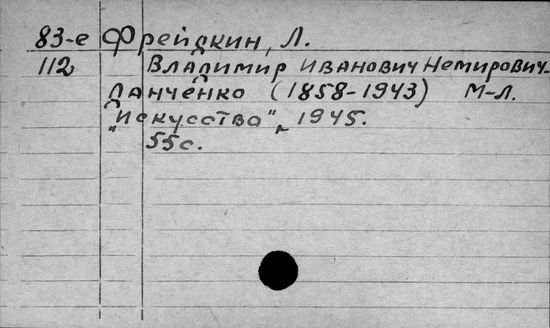 83-е Фрейдкин, Л.
112 Владимир Иванович Немирович-
Данченко (1858-1943) М-Л.
"Искусство", 1945.
55с.